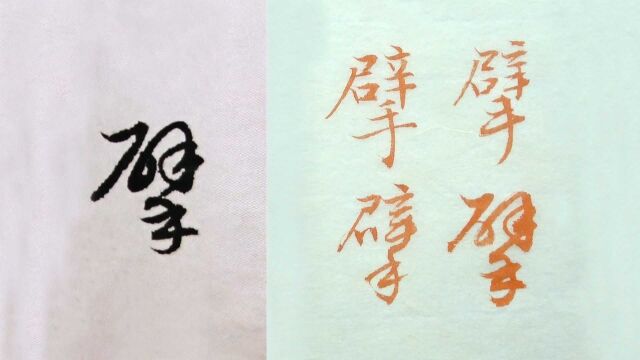 擘
擘擘
擘擘